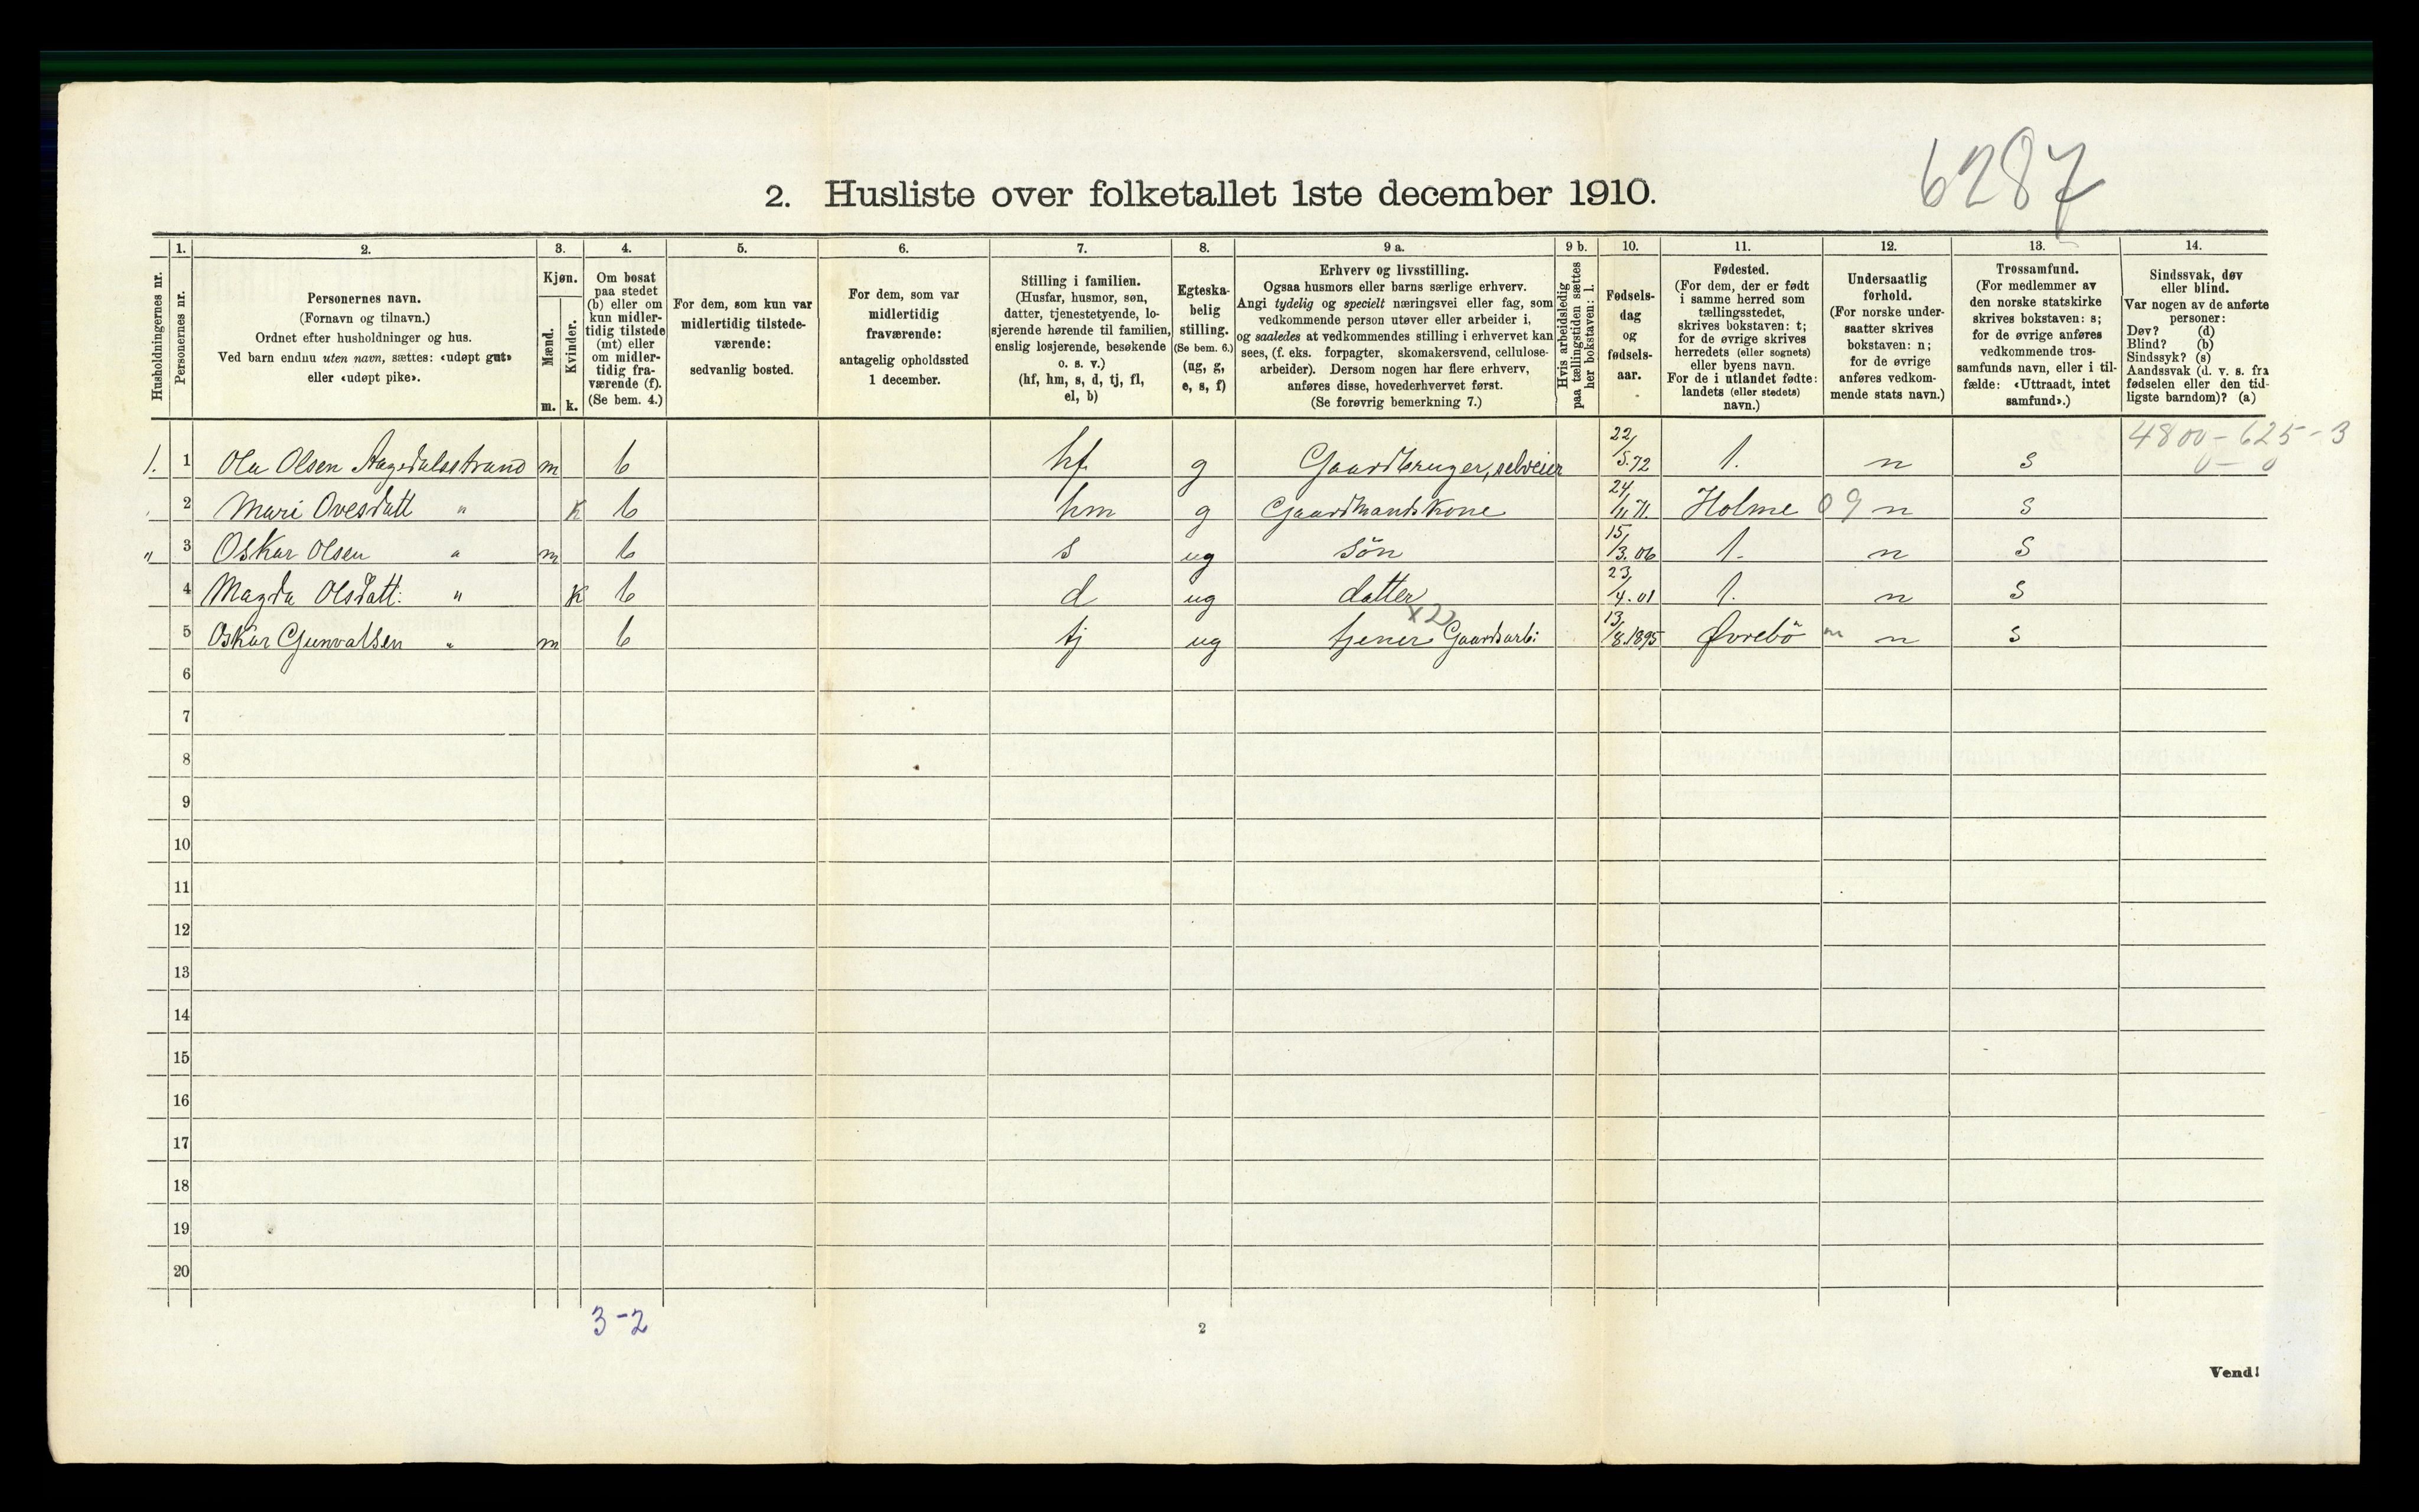 6287
2. Husliste over folketallet 1ste december 1910.
Husholdningernes nr.
1. Personernes nr.
2. Personernes navn. (Fornavn og tilnavn.) Ordnet efter husholdninger og hus. Ved barn endnu uten navn, sættes: «udøpt gut» eller «udøpt pike».
3. Kjøn. Mænd. m. Kvinder. k.
4. Om bosat paa stedet (b) eller om kun midlertidig tilstede (mt) eller om midlertidig fraværende (f). (Se bem. 4.)
5. For dem, som kun var midlertidig tilstedeværende: sedvanlig bosted.
6. For dem, som var midlertidig fraværende: antagelig opholdssted 1 december.
7. Stilling i familien. (Husfar, husmor, søn, datter, tjenestetyende, losjerende hørende til familien, enslig losjerende, besøkende o. s. v.) (hf, hm, s, d, tj, fl, el, b)
8. Egteskabelig stilling. (Se bem. 6.) (ug, g, e, s, f)
9 a. Erhverv og livsstilling. Ogsaa husmors eller barns særlige erhverv. Angi tydelig og specielt næringsvei eller fag, som vedkommende person utøver eller arbeider i, og saaledes at vedkommendes stilling i erhvervet kan sees, (f. eks. forpagter, skomakersvend, cellulosearbeider). Dersom nogen har flere erhverv, anføres disse, hovederhvervet først. (Se forøvrig bemerkning 7.)
9 b. Hvis arbeidsledig paa tællingstiden sættes her bokstaven: l.
10. Fødselsdag og fødselsaar.
11. Fødested. (For dem, der er født i samme herred som tællingsstedet, skrives bokstaven: t; for de øvrige skrives herredets (eller sognets) eller byens navn. For de i utlandet fødte: landets (eller stedets) navn.)
12. Undersaatlig forhold. (For norske undersaatter skrives bokstaven: n; for de øvrige anføres vedkommende stats navn.)
13. Trossamfund. (For medlemmer av den norske statskirke skrives bokstaven: s; for de øvrige anføres vedkommende trossamfunds navn, eller i tilfælde: «Uttraadt, intet samfund».)
14. Sindssvak, døv eller blind. Var nogen av de anførte personer: Døv? (d) Blind? (b) Sindssyk? (s) Aandssvak (d. v. s. fra fødselen eller den tidligste barndom)? (a)
4800 - 625 - 3
0 - 0
1. 1 Ola Olsen Aagedalsstrand m b hf g Gaardbruger, selveier 22/5.72 1. n s
2 Mari Ovesdatt " k b hm g Gaardmandskone 24/11 71. Holme 09 n s
" 3 Oskar Olsen " m b s ug søn 15/3.06 1. n s
4 Magda Olsdatt: " k b d ug datter 23/4.01 1. n s
5 Oskar Gunvalsen " m b tj ug tjener Gaardsarb: x22 13/8.1895 Øvrebö m n s
6
7
8
9
10
11
12
13
14
15
16
17
18
19
20
3-2
2
Vend!